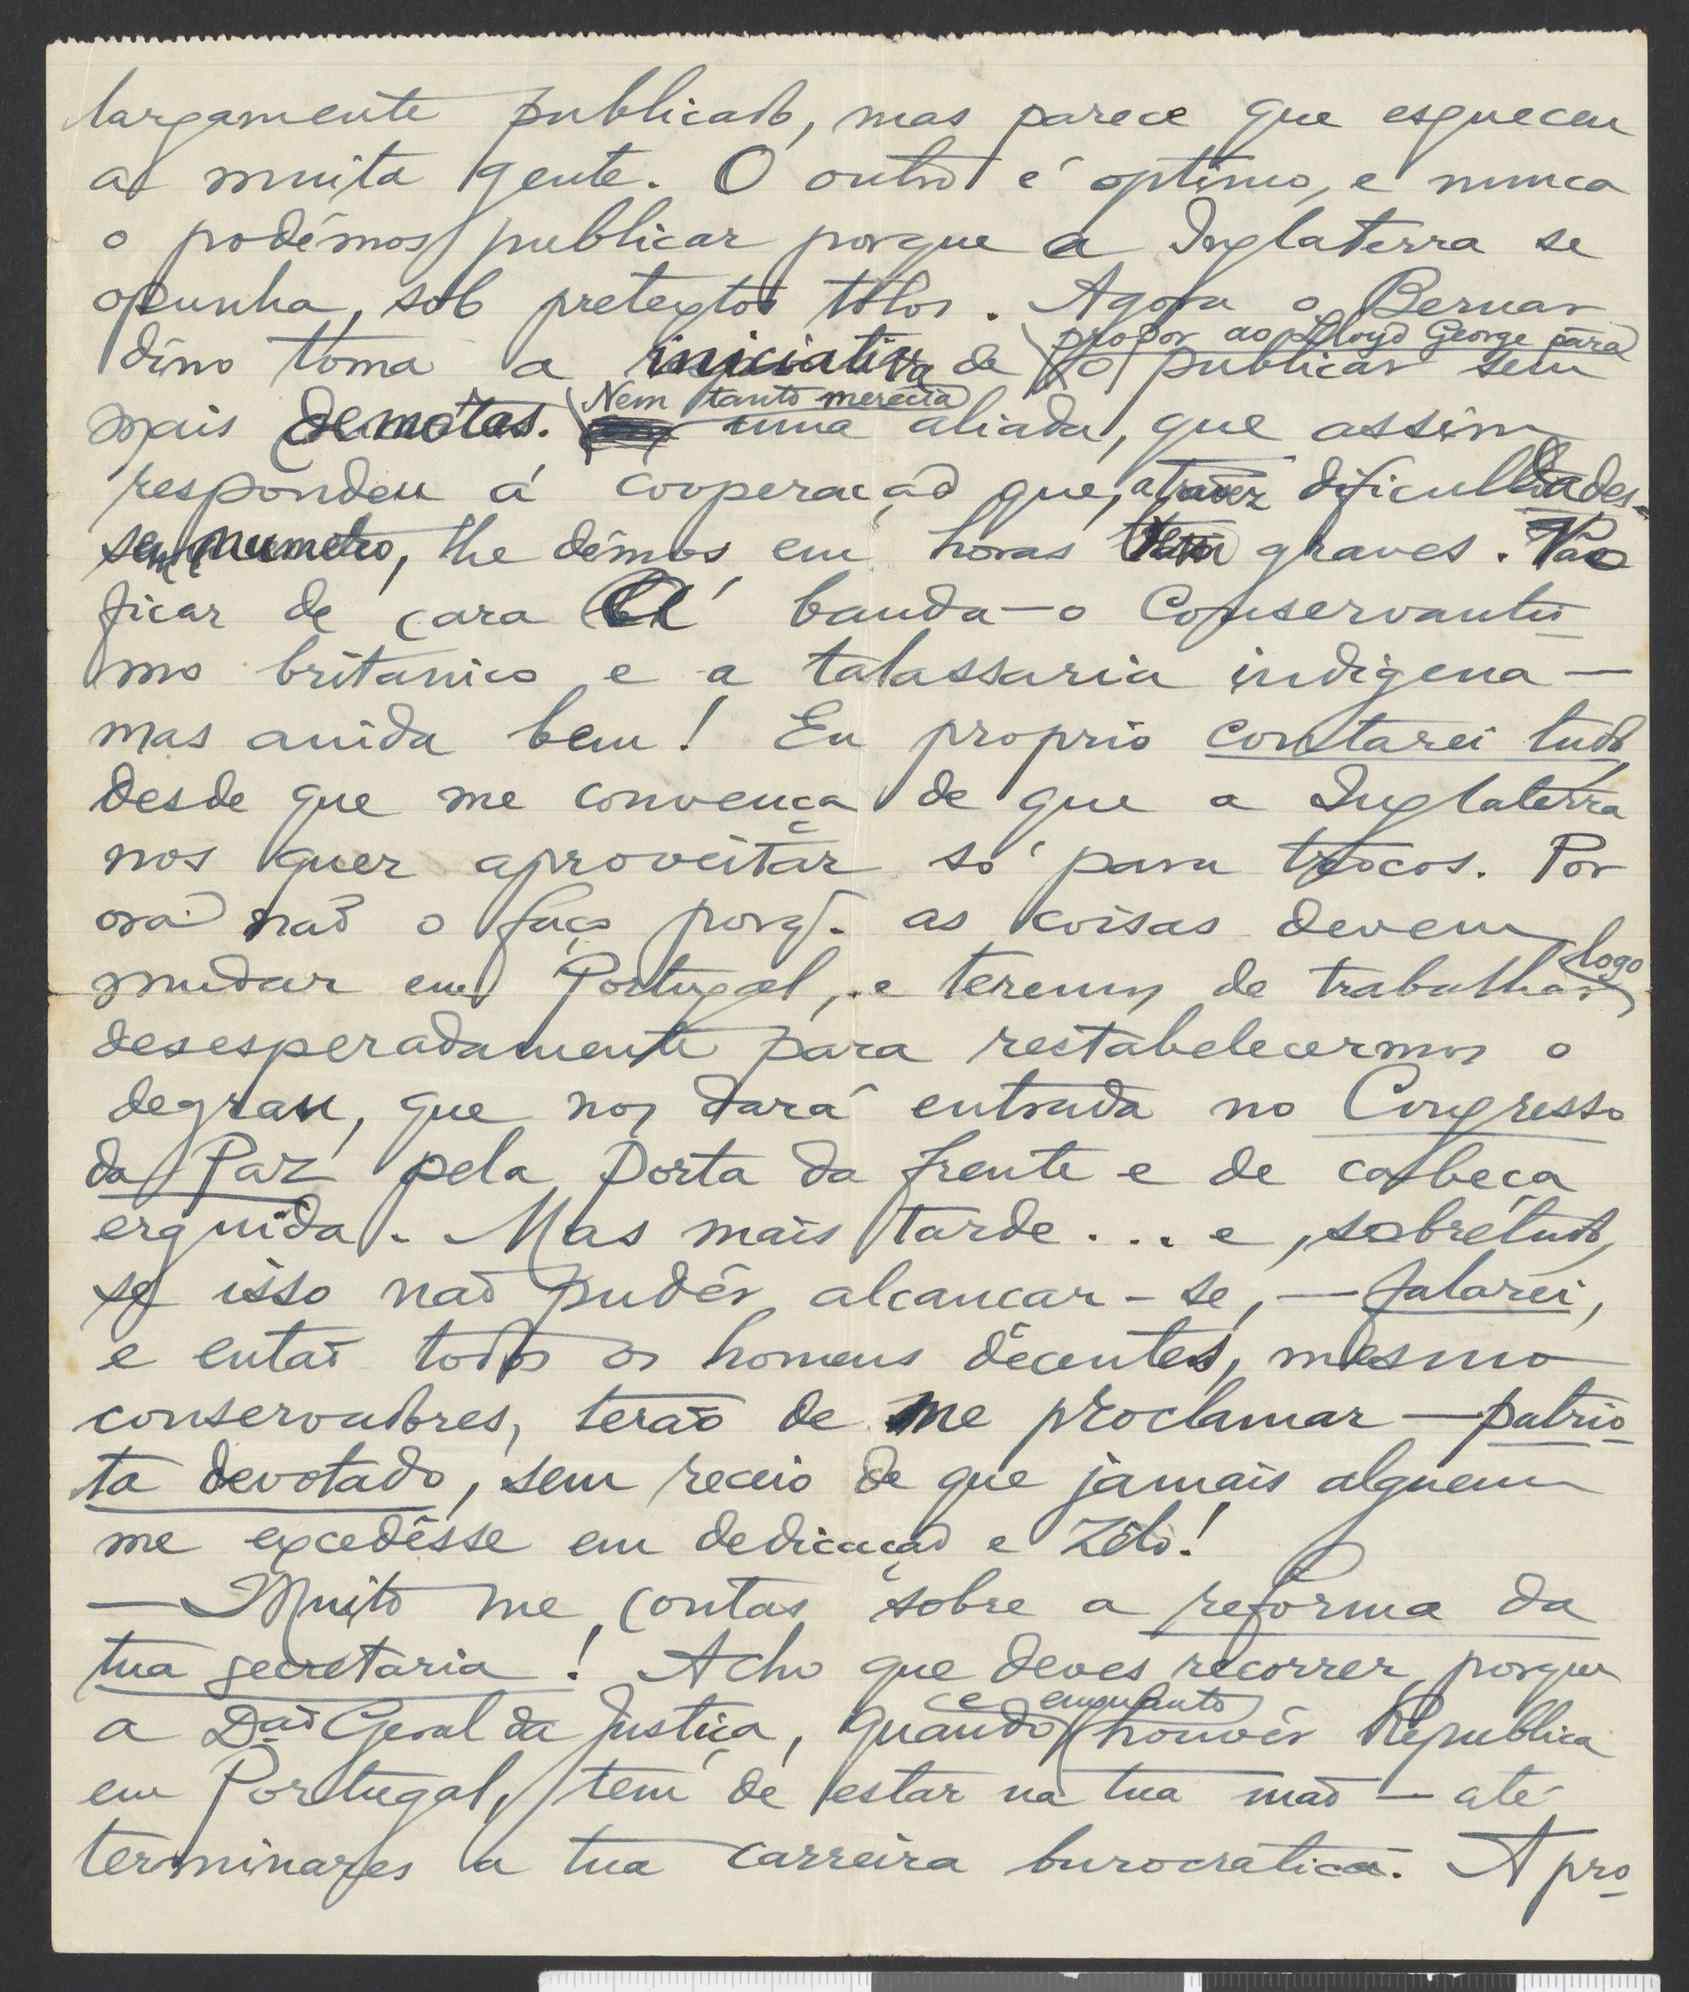 largamente publicado, mas parece que esqueceu
a muita gente. O outro é optimo, e nunca
o podémos publicar porque a Inglaterra se
opunha, sob pretextos tôlos. Agora o Bernar
dino toma a iniciativa de propor ao Lloyd George para o publicar sem
mais demoras. Nem tanto merecia uma aliada, que assim
respondeu á cooperação que, atravez dificuldades
sem numero, lhe démos em horas graves. Vão
ficar de cara á banda — o Conservantis-
mo britanico e a talassaria indigena —
mas ainda bem! Eu proprio contarei tudo,
desde que me convença de que a Inglaterra
nos quer aproveitar só para trócos. Por
ora não o faço porq. as coisas devem
mudar em Portugal, e teremos de trabalhar logo
desesperadamente para restabelecermos o
degrau, que nos dará entrada no Congresso
da Paz pela porta da frente e de cabeça
erguida. Mas mais tarde... e, sobretudo,
se isso não pudér alcancar-se, — falarei,
e então todos os homens decentes, mesmo
conservadores, terão de me proclamar — patrio-
ta devotado, sem receio de que jamais alguem
me excedêsse em dedicação e zêlo!
— Muito me contas sobre a reforma da
tua secretaria! Acho que deves recorrer, porque
a Dão Geral da Justiça, quando e emquanto houvér Republica
em Portugal, tem de estar na tua mão — até
terminares a tua carreira burocratica. A pro-